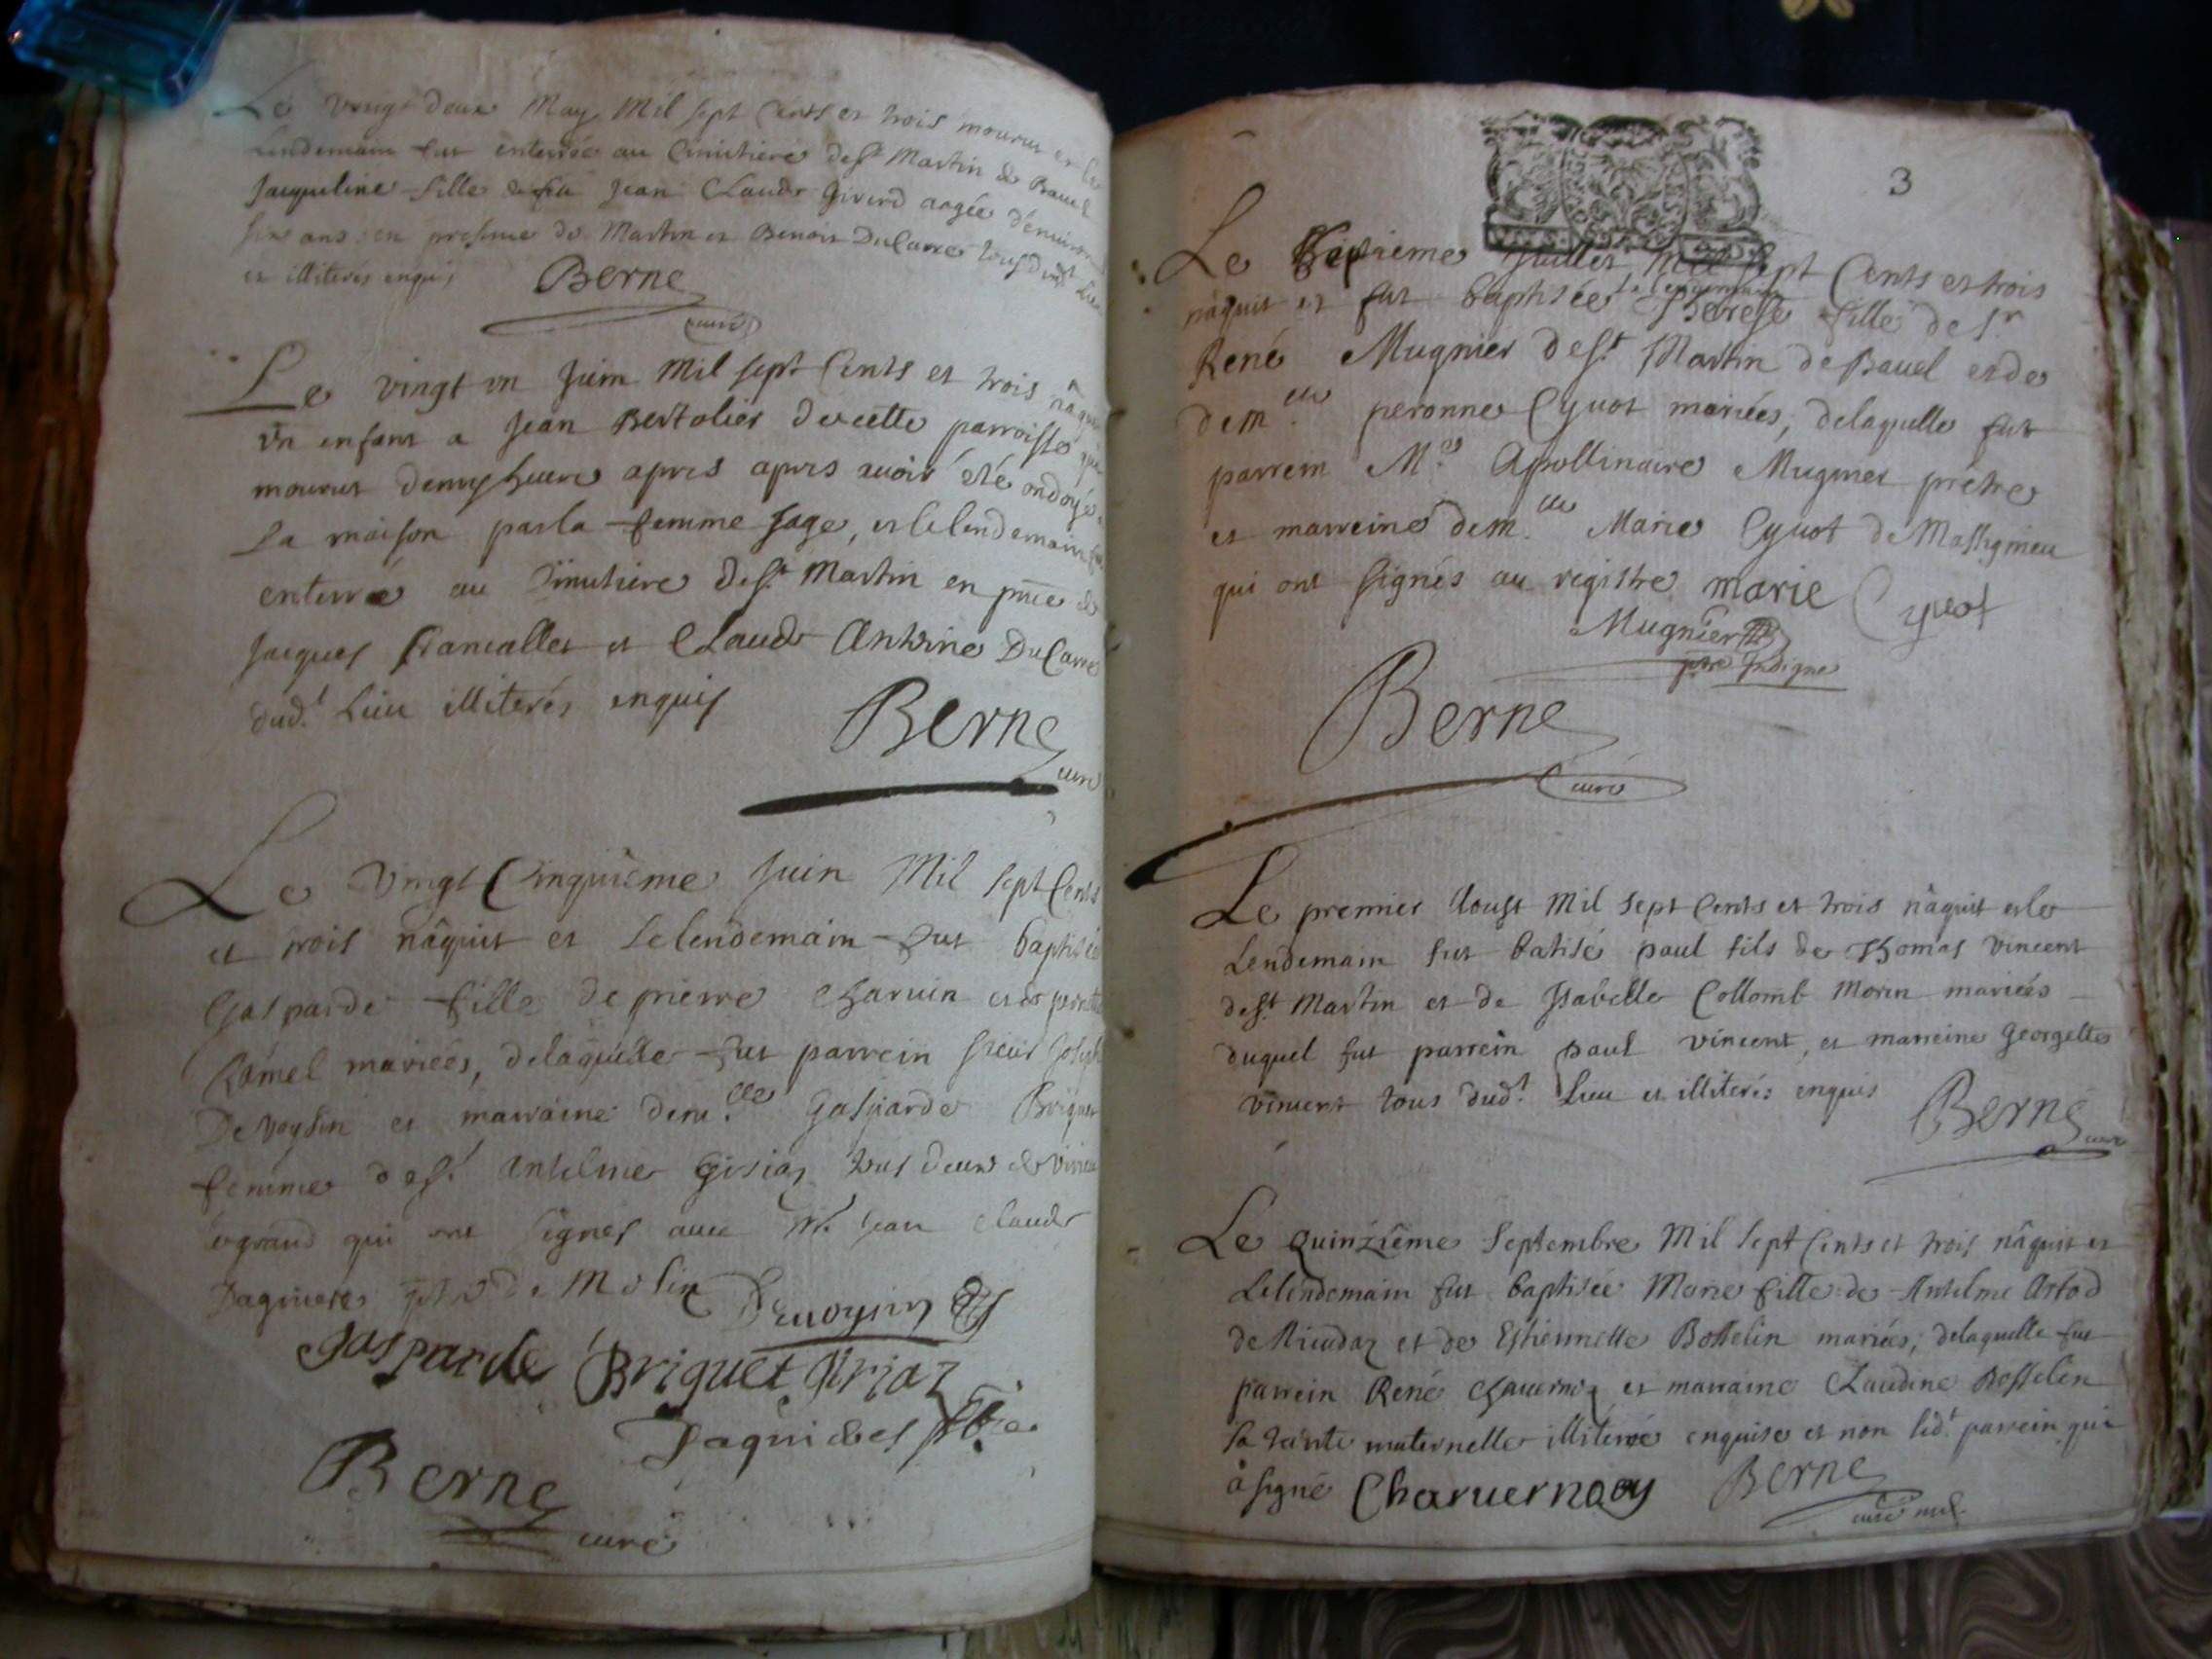 Le vingt deux May Mil sept Cents et trois mourut et le
lendemain fut enterrée au Cimitiere de st Martin de Bavel
Jacqueline fille de feu Jean Claude Girerd aagée d'environ
six ans en presence de Martin et Benoit DuCarre tous dud lieu
et illiterés enquis Berne
curé
Le vingt un Juin Mil sept Cents et trois nâquit
un enfant a Jean Bertolier de cette parroisse qui
mourut demy heure apres apres avoir été ondoyé a
La maison par la femme sage, et le lendemain fut
enterré au Cimitiere de st Martin en pnce de
Jacques francallet et Claude Antoine DuCarre
dud.t Lieu illiterés enquis
Berne
curé
Le vingt Cinquième Juin Mil sept Cents
et trois nâquit et le lendemain fut baptisée
Gasparde fille de pierre Charvin et de
Ramel mariées, delaquelle fut parrein sieur Joseph
Devoysin et marraine dem.lle Gasparde Briguet
femme de st Antelme Girjaz tous deux de Virieu
legrand qui ont signés avec Mr Jean Claude
ptre de Molin Devoysin
gasparde Briguet girjaz
Berne
curé
3
Le septième Juillet Mil sept Cents et trois
nâquit et fut baptisée le lendemain Therese fille de Sr
René Mugnier de st Martin de Bavel et de
dem.lle peronne Cyvot mariées, delaquelle fut
parrein M.re Apollinaire Mugnier prétre
et marreine dem.lle Marie Cyvot de Massignieu
qui ont signés au registre marie Cyvot
Mugnier
ptre Indigne
Berne
curé
Le premier Aoust Mil sept Cents et trois nâquit et le
Lendemain fut batisé paul fils de Thomas Vincent
de st Martin et de Isabelle Collomb Morin mariées
duquel fut parrein paul vincent, et marreine Georgette
vincent tous dud.t Lieu et illiterés enquis
Berne
curé
Le quinzième Septembre Mil sept Cents et trois nâquit et
Lelendemain fut baptisée Marie fille de Antelme Artod
de et de Estiennette Bosselin mariés, delaquelle fut
parrein René et marraine Claudine Bosselin
sa tante maternelle illiterée enquise et non led.t parrein qui
à signé Charvernay Berne
curé